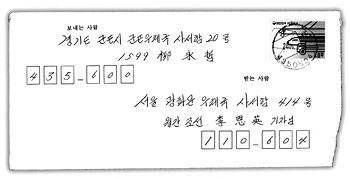 보내는 사람
경기도 군포시 군포우체국 사서함 20호
1599 柳永哲
435-600
받는 사람
서울 광화문 우체국 사서함 414호
월간조선 李恩英 기자님
110-604